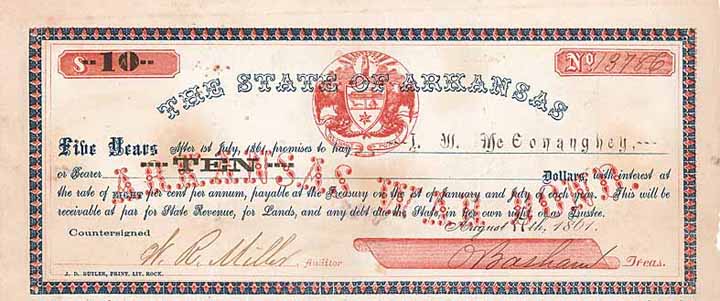 $ --10--
No 13786
THE STATE OF ARKANSAS
Five Years After 1st July, 1861, promises to pay J. W. McConaughey,
or Bearer ---TEN--- Dollars, with interest at
ARKANSAS WAR BOND.
the rate of EIGHT per cent per annum, payable at the Treasury on the 1st of January and July of each year. This will be
receivable at par for State Revenue, for Lands, and any debt due the State, in her own right, or as Trustee.
August 1861.
Countersigned
W. R. Miller Auditor
O Basham Treas.
J. D. BUTLER, PRINT, LIT. ROCK.